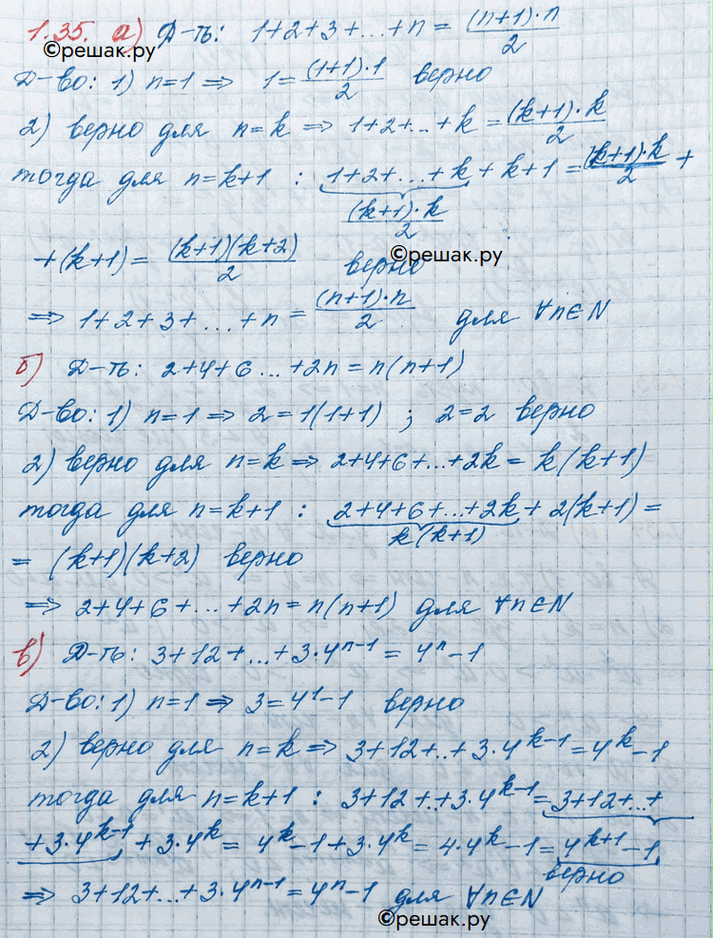 1.35. а) Д-ть: 1+2+3+...+n = (n+1)·n/2
©решак.ру
Д-во: 1) n=1 ⇒ 1 = (1+1)·1/2 верно
2) верно для n=k ⇒ 1+2+...+k = (k+1)·k/2
тогда для n=k+1 : 1+2+...+k + k+1 = (k+1)·k/2 +
(k+1)·k/2
+(k+1) = (k+1)(k+2)/2 верно
©решак.ру
⇒ 1+2+3+...+n = (n+1)·n/2 для ∀n∈N
б) Д-ть: 2+4+6...+2n = n(n+1)
Д-во: 1) n=1 ⇒ 2=1(1+1) ; 2=2 верно
2) верно для n=k ⇒ 2+4+6+...+2k = k(k+1)
тогда для n=k+1 : 2+4+6+...+2k + 2(k+1) =
k(k+1)
= (k+1)(k+2) верно
⇒ 2+4+6+...+2n = n(n+1) для ∀n∈N
в) Д-ть: 3+12+...+3·4ⁿ⁻¹ = 4ⁿ-1
Д-во: 1) n=1 ⇒ 3=4¹-1 верно
2) верно для n=k ⇒ 3+12+..+3·4ᵏ⁻¹=4ᵏ-1
тогда для n=k+1 : 3+12+..+3·4ᵏ⁻¹=3+12+..+
+3·4ᵏ⁻¹ + 3·4ᵏ = 4ᵏ-1+3·4ᵏ = 4·4ᵏ-1=4ᵏ⁺¹-1
верно
⇒ 3+12+...+3·4ⁿ⁻¹=4ⁿ-1 для ∀n∈N
©решак.ру